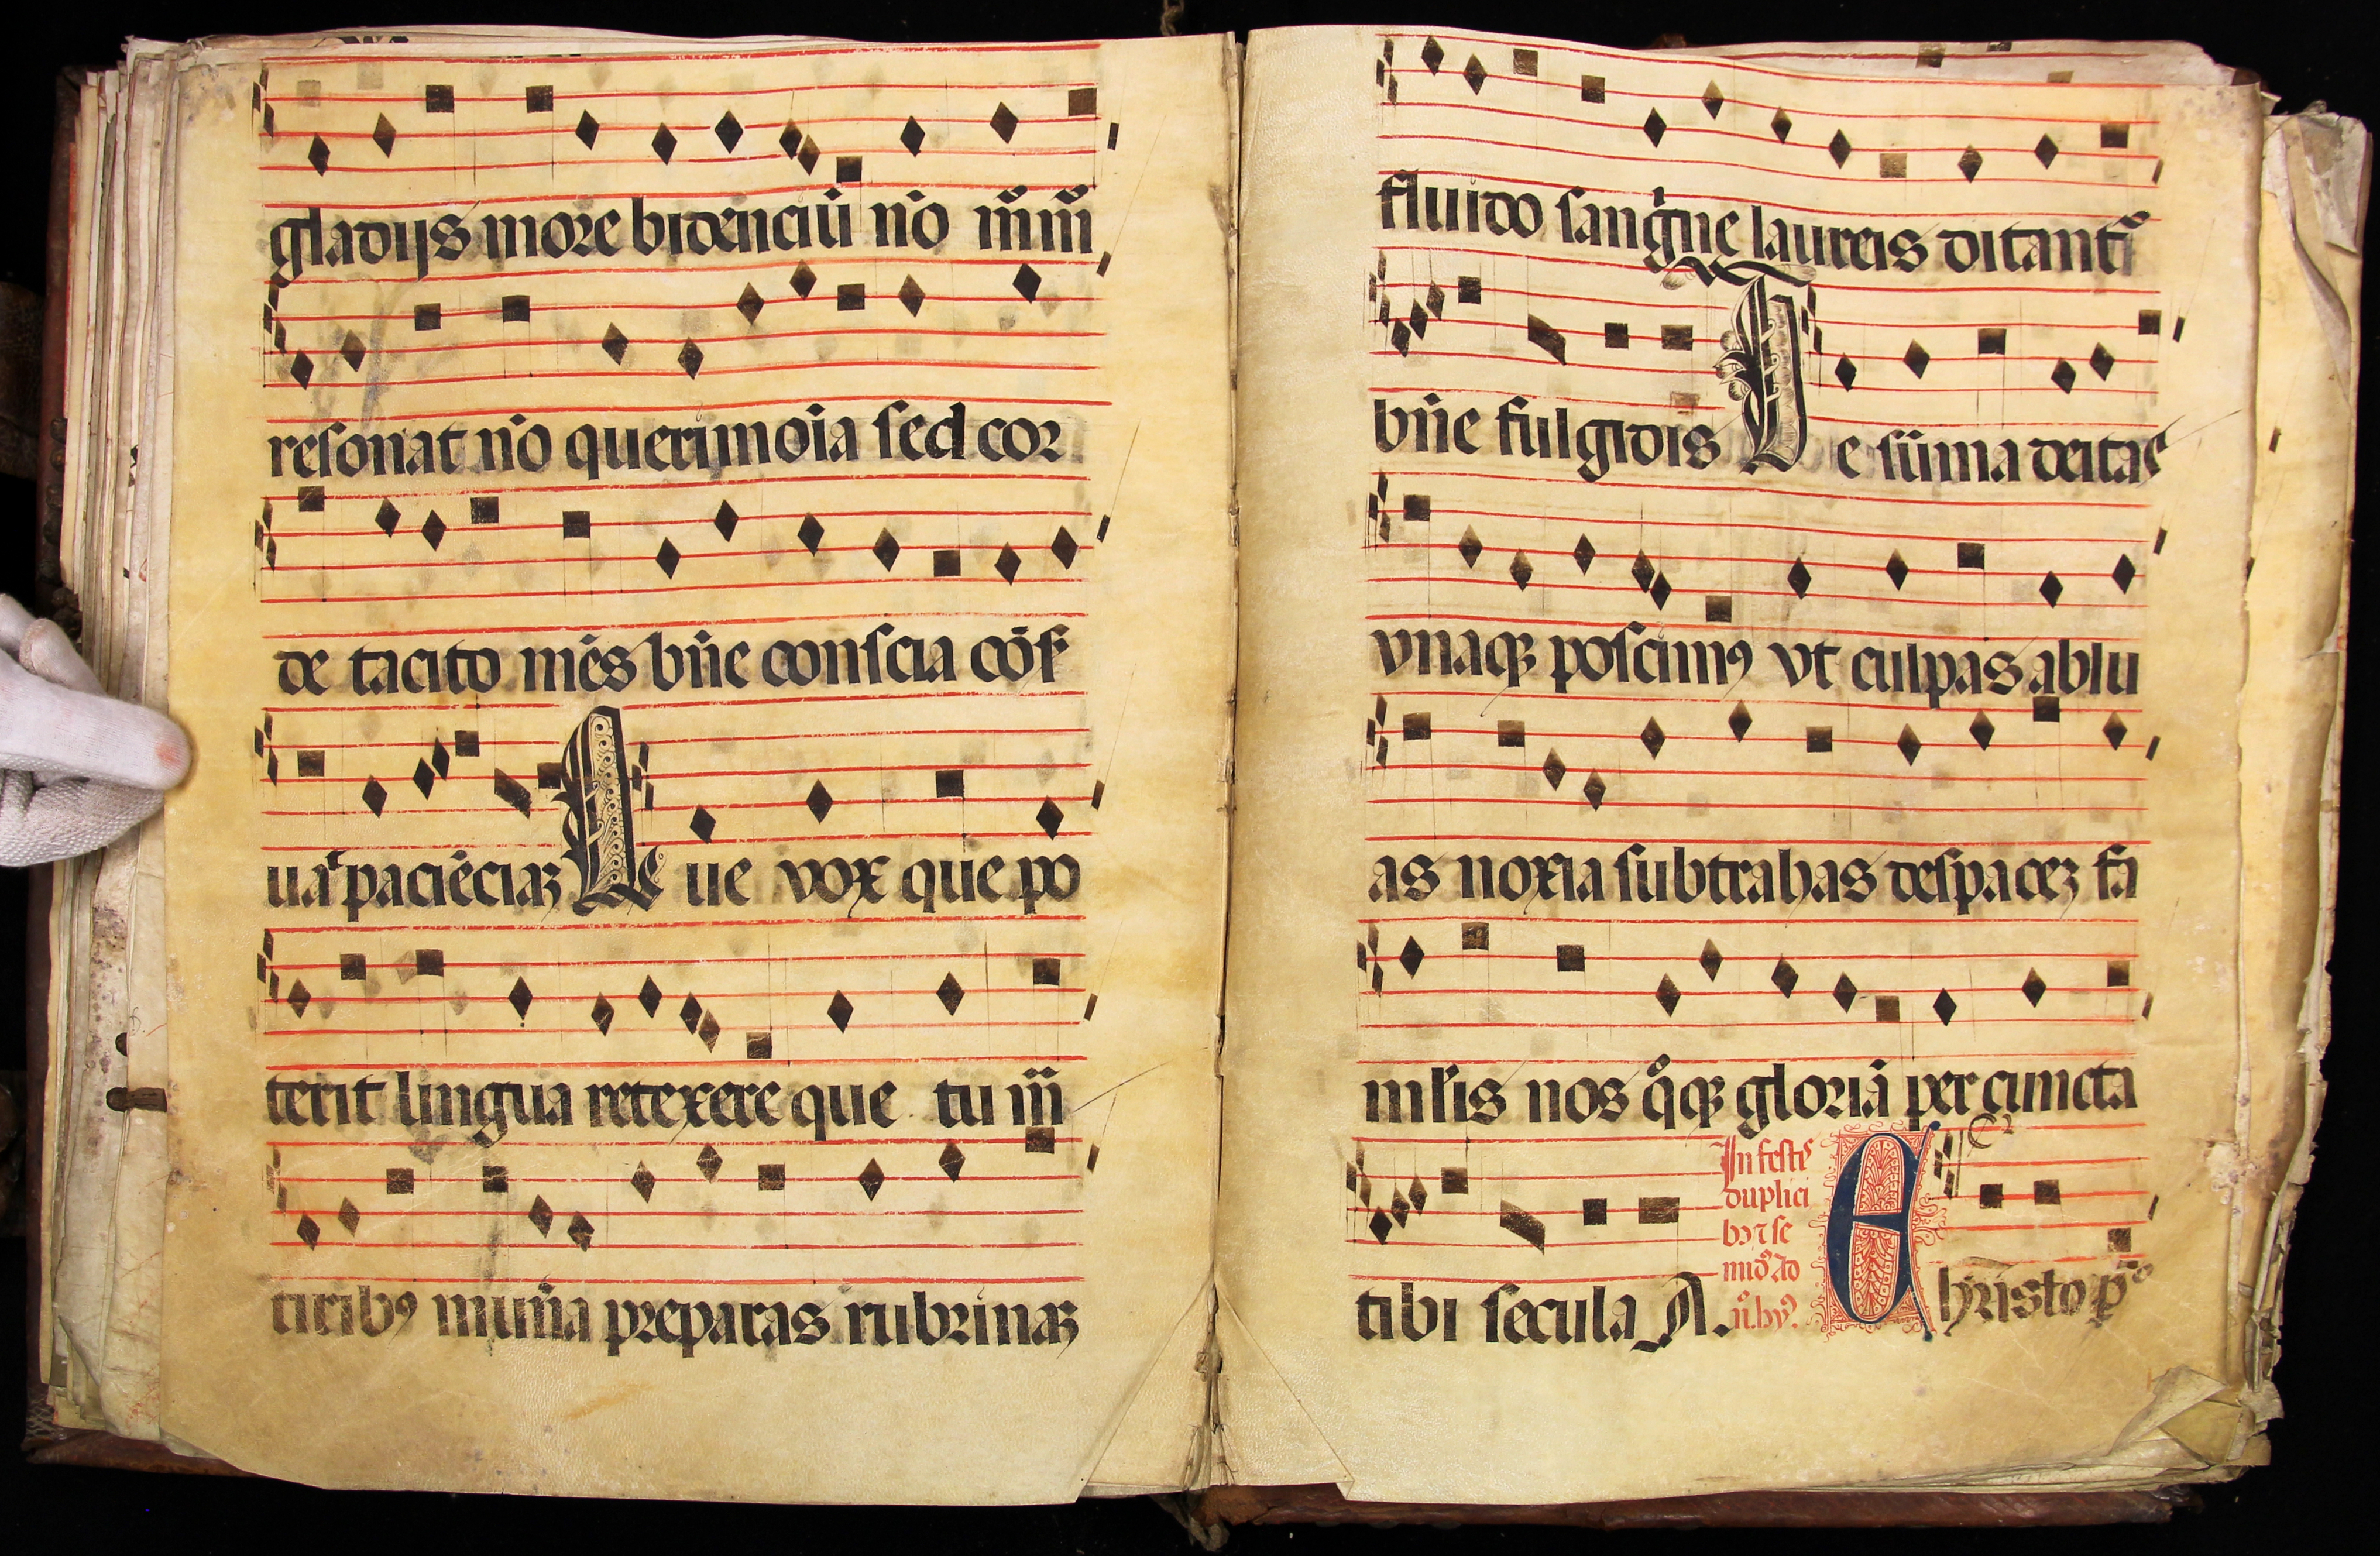 gladijs more bidenciū nō m̄m̄
resonat nō querimōia sed cor
de tacito mēs bn̄e conscia cōs
uat paciēciaꝫ Que vox que po
terit lingua retexere que tu m̄
tiribꝰ mun̄a preparas rubrinaꝫ
fluido sangine laureis ditant
bn̄e fulgidis Te sūma deitas
vnaqꝫ poscimꝰ vt culpas ablu
as noxia subtrahas des paceꝫ fa
ml̄is nos qͦqꝫ gloriā per cuncta
tibi secula A.
In festis
duplici
bꝰ ⁊ se
Christo